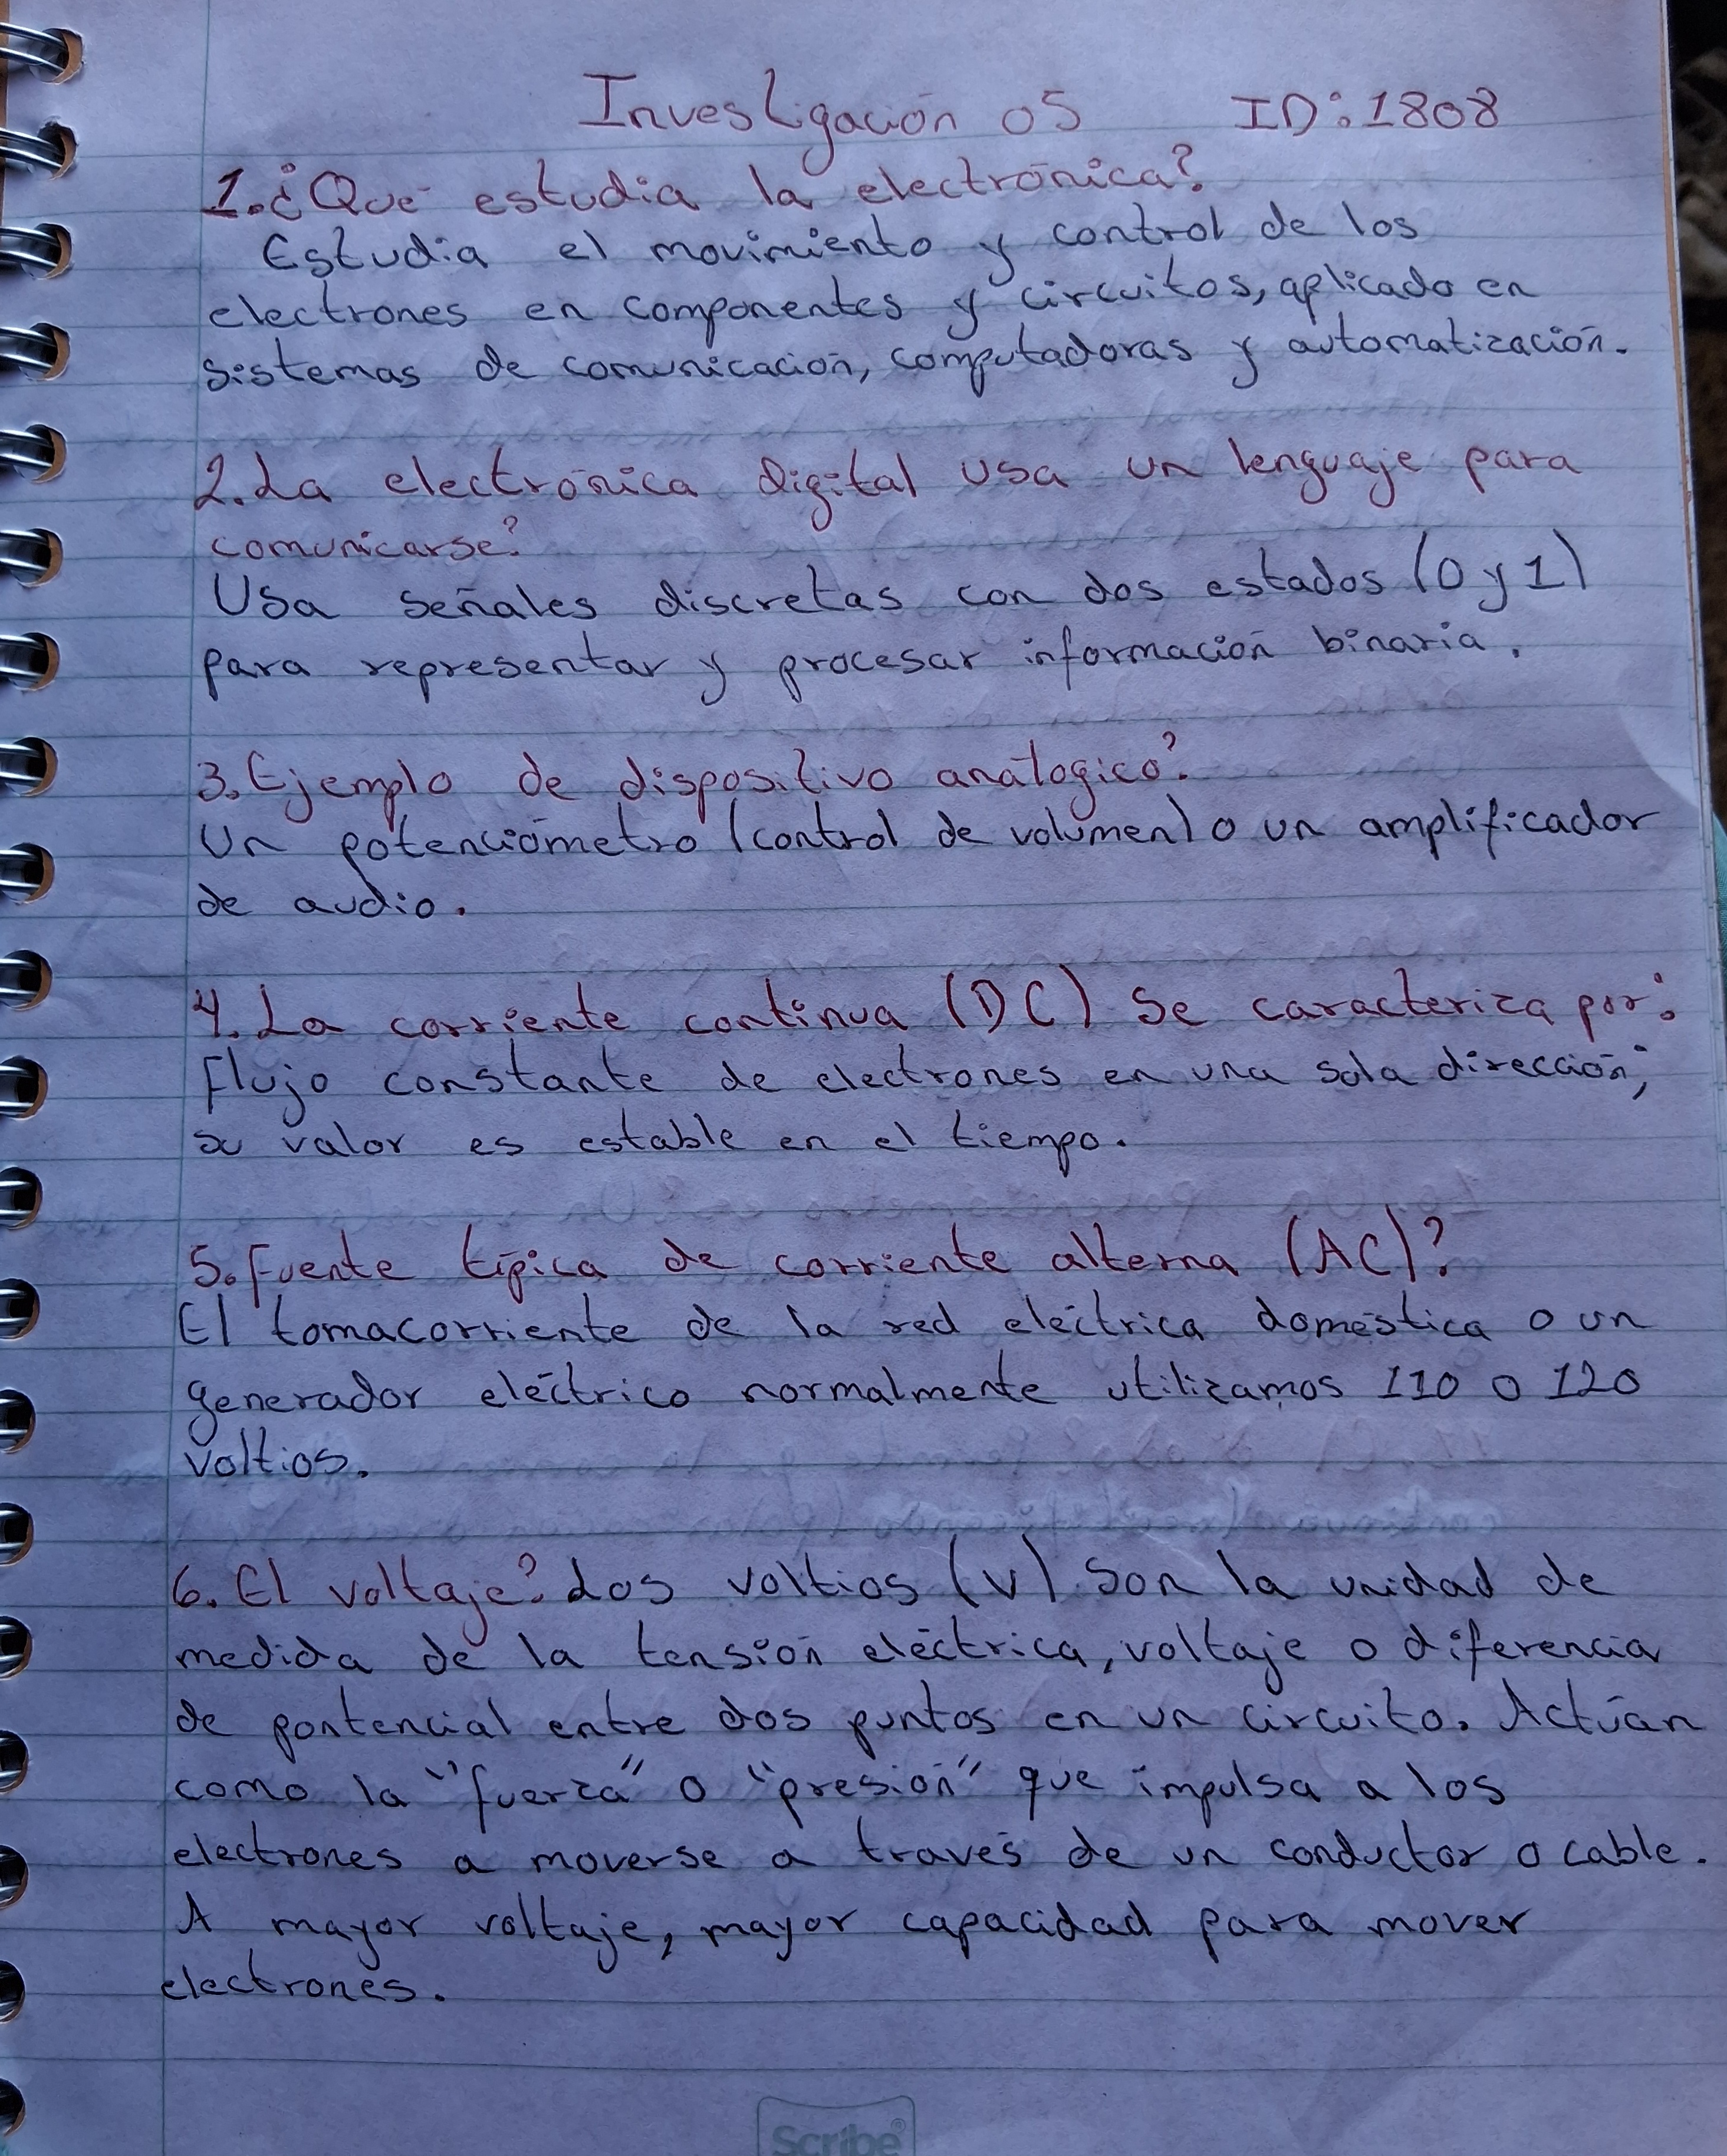 Investigación 05 ID:1808
1.¿Qué estudia la electrónica?
Estudia el movimiento y control de los
electrones en componentes y circuitos, aplicado en
sistemas de comunicación, computadoras y automatización.
2.La electrónica digital usa un lenguaje para
comunicarse?
Usa señales discretas con dos estados (0 y 1)
para representar y procesar información binaria.
3.Ejemplo de dispositivo análogico?
Un potenciómetro (control de volumen) o un amplificador
de audio.
4.La corriente continua (DC) se caracteriza por:
Flujo constante de electrones en una sola dirección;
su valor es estable en el tiempo.
5.Fuente típica de corriente alterna (AC)?
El tomacorriente de la red eléctrica doméstica o un
generador eléctrico normalmente utilizamos 110 o 120
voltios.
6.El voltaje? Los voltios (V) son la unidad de
medida de la tensión eléctrica, voltaje o diferencia
de pontencial entre dos puntos en un circuito. Actúan
como la "fuerza" o "presión" que impulsa a los
electrones a moverse a través de un conductor o cable.
A mayor voltaje, mayor capacidad para mover
electrones.
Scribe®